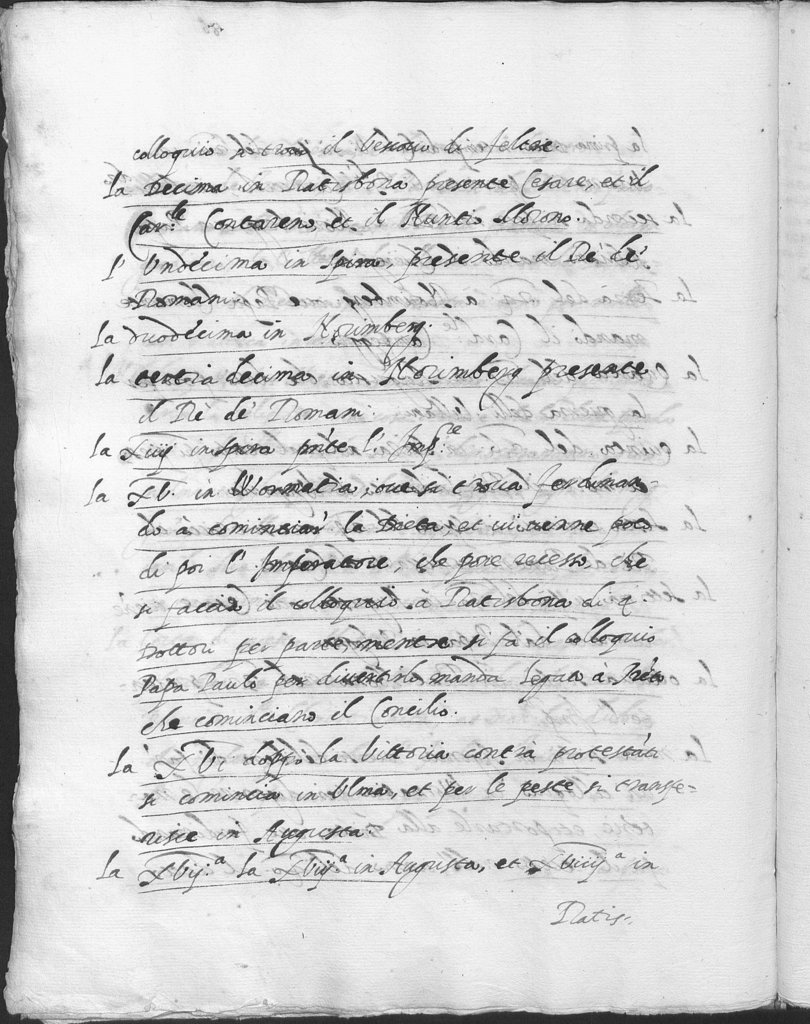 colloquio si trovò il Vescovo di feltre
La Decima in Ratisbona presente Cesare, et il
Car:le Contareno, et il Nuntio Morone.
l' Undecima in Spira, presente il Rè de'
Romani.
La duodecima in Norimberg.
La tertia decima in Norimberg presente
il Rè de' Romani.
La XIIIJ in Spira pñte l' Imp:re
La XV. in Wormatia, ove si trova Ferdinan=
do à cominciar la Dieta, et vi venne poco
di poi l' Imperatore, che pore recesso, che
si faccia il colloquio à Ratisbona di 4.
Dottori per parte, mentre si fà il colloquio
Papa Paulo per divertirlo, manda Legati à Trẽto
che cominciano il Concilio.
La XVI doppò la Vittoria contra protestãti
si comincia in Ulma, et per le peste si transfe=
risce in Augusta.
La XVIJ:a La XVIIJ:a in Augusta, et XVIIIJ:a in
Ratis-